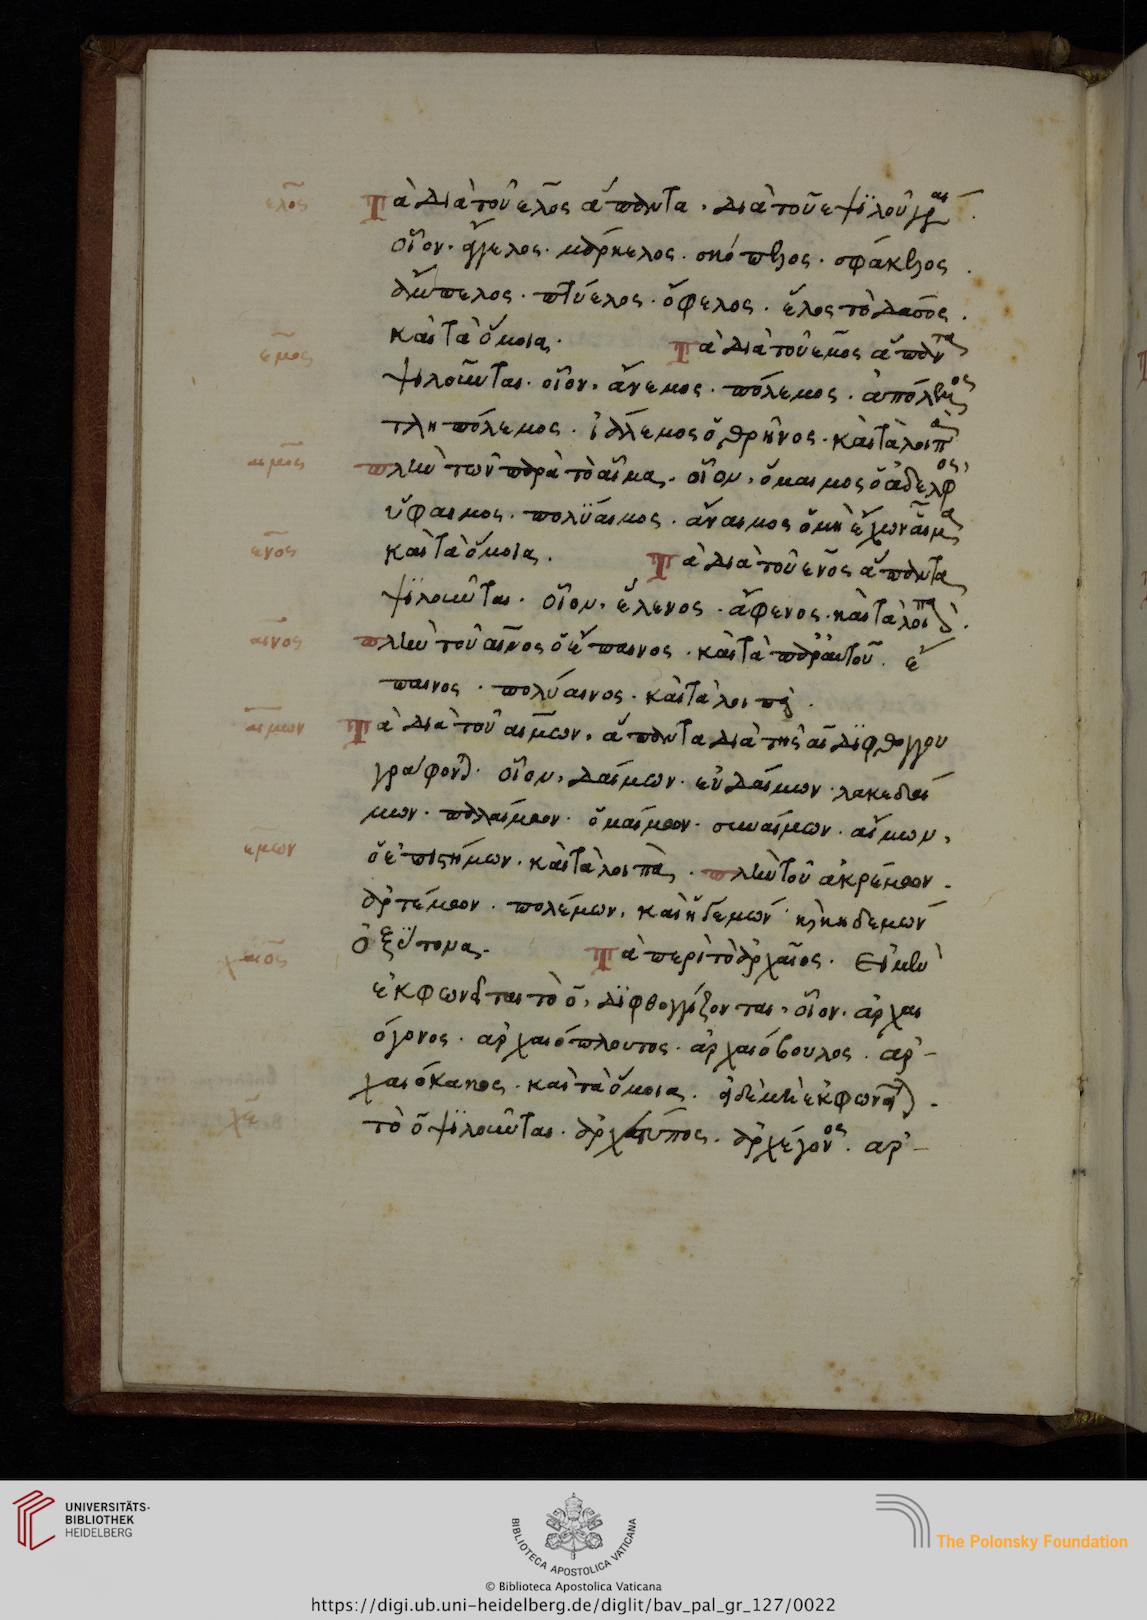 ελος
Τὰ διὰ τοῦ ελος ἅπαντα, διὰ τοῦ ε ψιλοῦ γρ
οἷον. ἄγγελος. μάρκελος. σκόπελος. σφάκελος.
πτύελος. ὄφελος. ἕλος τὸ δάσος.
καὶ τὰ ὅμοια.
Τὰ διὰ τοῦ εμος ἅπαντα
εμος
ψιλοῦνται. οἷον, ἄνεμος. πόλεμος. ἀπόλεμος
τληπόλεμος. ἰάλεμος ὁ θρῆνος. καὶ τὰ λοιπὰ
αιμος
πλὴν τῶν παρὰ τὸ αἷμα. οἷον, ὅμαιμος ὁ ἀδελφός,
ὕφαιμος. πολύαιμος. ἄναιμος ὁ μὴ ἔχων αἷμα
ενος
καὶ τὰ ὅμοια.
Τὰ διὰ τοῦ ενος ἅπαντα
ψιλοῦνται. οἷον, ἕλενος. ἄφενος. καὶ τὰ λοιπά.
αινος
πλὴν τοῦ αἶνος ὁ ἔπαινος. καὶ τὰ παρ' αὐτοῦ. ἔ
παινος. πολύαινος. καὶ τὰ λοιπά.
αιμων
Τὰ διὰ τοῦ αιμων, ἅπαντα διὰ τῆς αι διφθόγγου
γράφονται. οἷον, δαίμων. εὐδαίμων. λακεδαί
μων. παλαίμων. ὁμαίμων. συναίμων. αἵμων,
εμων
ὁ ἐπιστήμων. καὶ τὰ λοιπά. πλὴν τοῦ ἀκρέμων.
ἀρτέμων. πολέμων. καὶ ἡγεμών καὶ κηδεμών
ὀξύτονα.
Τὰ περὶ τὸ ἀρχαῖος. Εἰ μὲν
χαιος
ἐκφωνεῖται τὸ ο, διφθογγίζονται, οἷον. ἀρχαι
όγονος. ἀρχαιόπλουτος. ἀρχαιόβουλος. ἀρ-
χαιόκαπος. καὶ τὰ ὅμοια. εἰ δὲ μὴ ἐκφωνεῖται.
χε
τὸ ο ψιλοῦνται. ἀρχέτυπος. ἀρχέγονος. ἀρ-
UNIVERSITÄTS-
BIBLIOTHEK
HEIDELBERG
BIBLIOTECA APOSTOLICA VATICANA
The Polonsky Foundation
© Biblioteca Apostolica Vaticana
https://digi.ub.uni-heidelberg.de/diglit/bav_pal_gr_127/0022